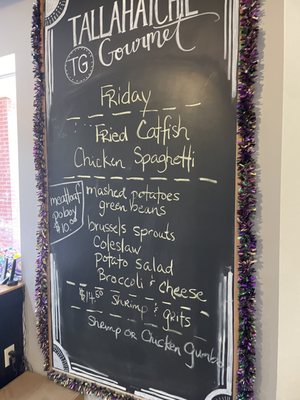 TALLAHATCHIE
TG
Gourmet
Friday
Fried Catfish
Chicken Spaghetti
meatloaf
poboy
$10.00
mashed potatoes
green beans
brussels sprouts
Coleslaw
Potato Salad
Broccoli & cheese
$14.50 Shrimp & grits
Shrimp or Chicken Gumbo